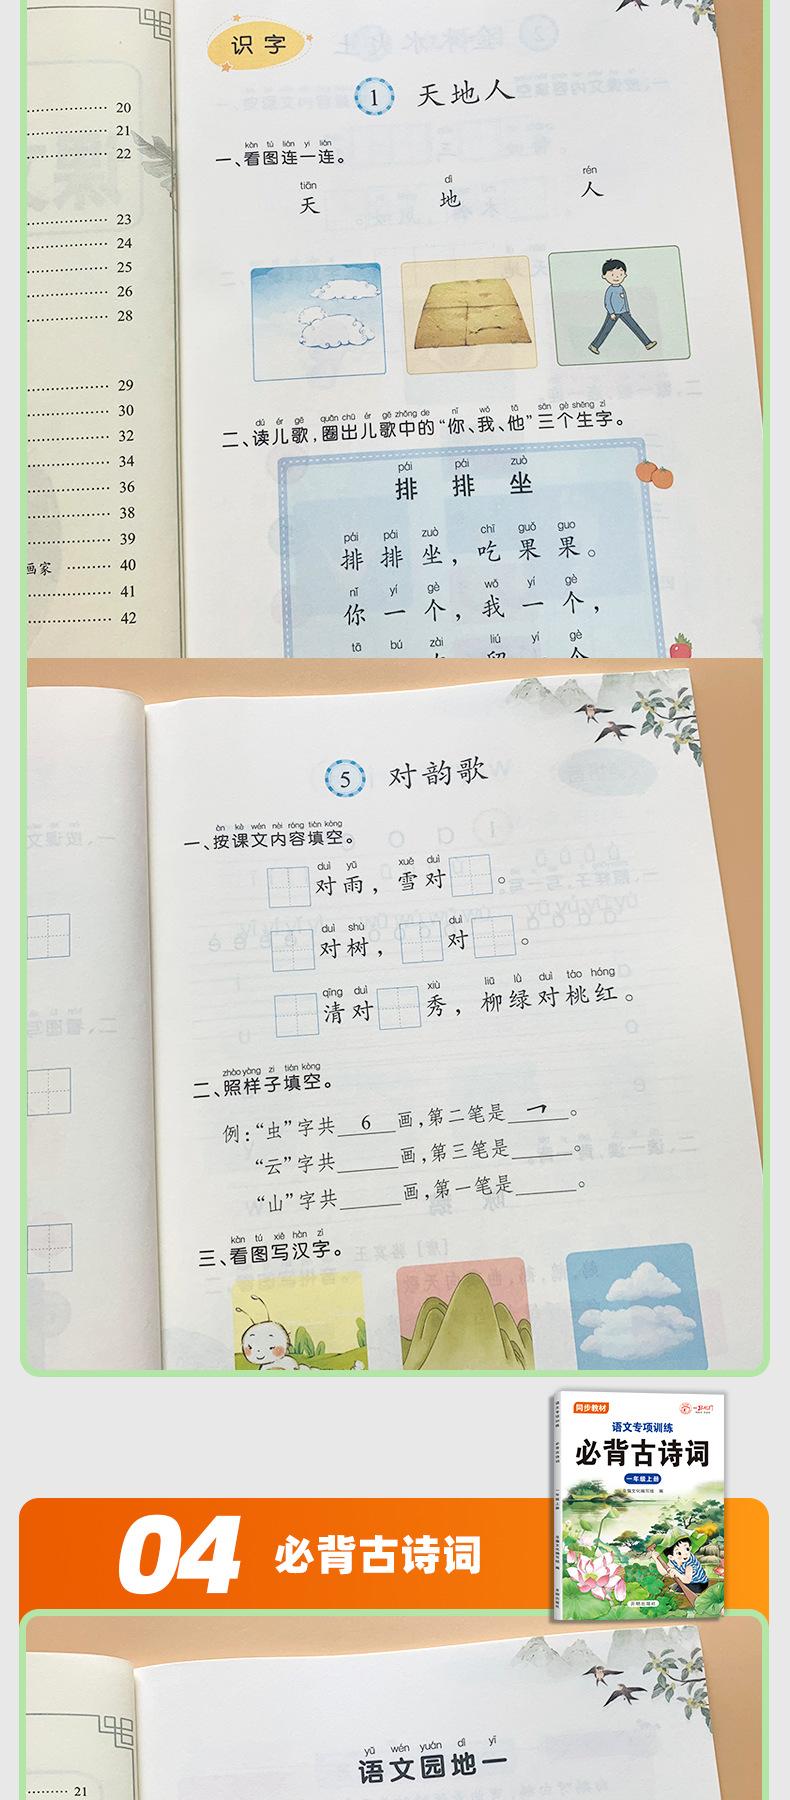 识字
1 天地人
20
21
22
23
24
25
26
28
29
30
32
34
36
38
39
画家 40
41
42
kàn tú lián yi lián
一、看图连一连。
tiān dì rén
天 地 人
dú ér gē quān chū ér gē zhōng de nǐ wǒ tā sān gè shēng zì
二、读儿歌，圈出儿歌中的“你、我、他”三个生字。
pái pái zuò
排 排 坐
pái pái zuò chī guǒ guo
排排坐，吃果果。
nǐ yí gè wǒ yí gè
你一个，我一个，
tā bú zài liú yí gè
5 对韵歌
àn kè wén nèi róng tián kòng
一、按课文内容填空。
duì yǔ xuě duì
对雨，雪对。
duì shù duì
对树，对。
qīng duì xiù liǔ lǜ duì táo hóng
清对秀，柳绿对桃红。
zhào yàng zi tián kòng
二、照样子填空。
例：“虫”字共 6 画，第二笔是㇕。
“云”字共______画，第三笔是______。
“山”字共______画，第一笔是______。
kàn tú xiě hàn zì
三、看图写汉字。
同步教材
语文专项训练
必背古诗词
一年级上册
04 必背古诗词
yǔ wén yuán dì yī
语文园地一
21